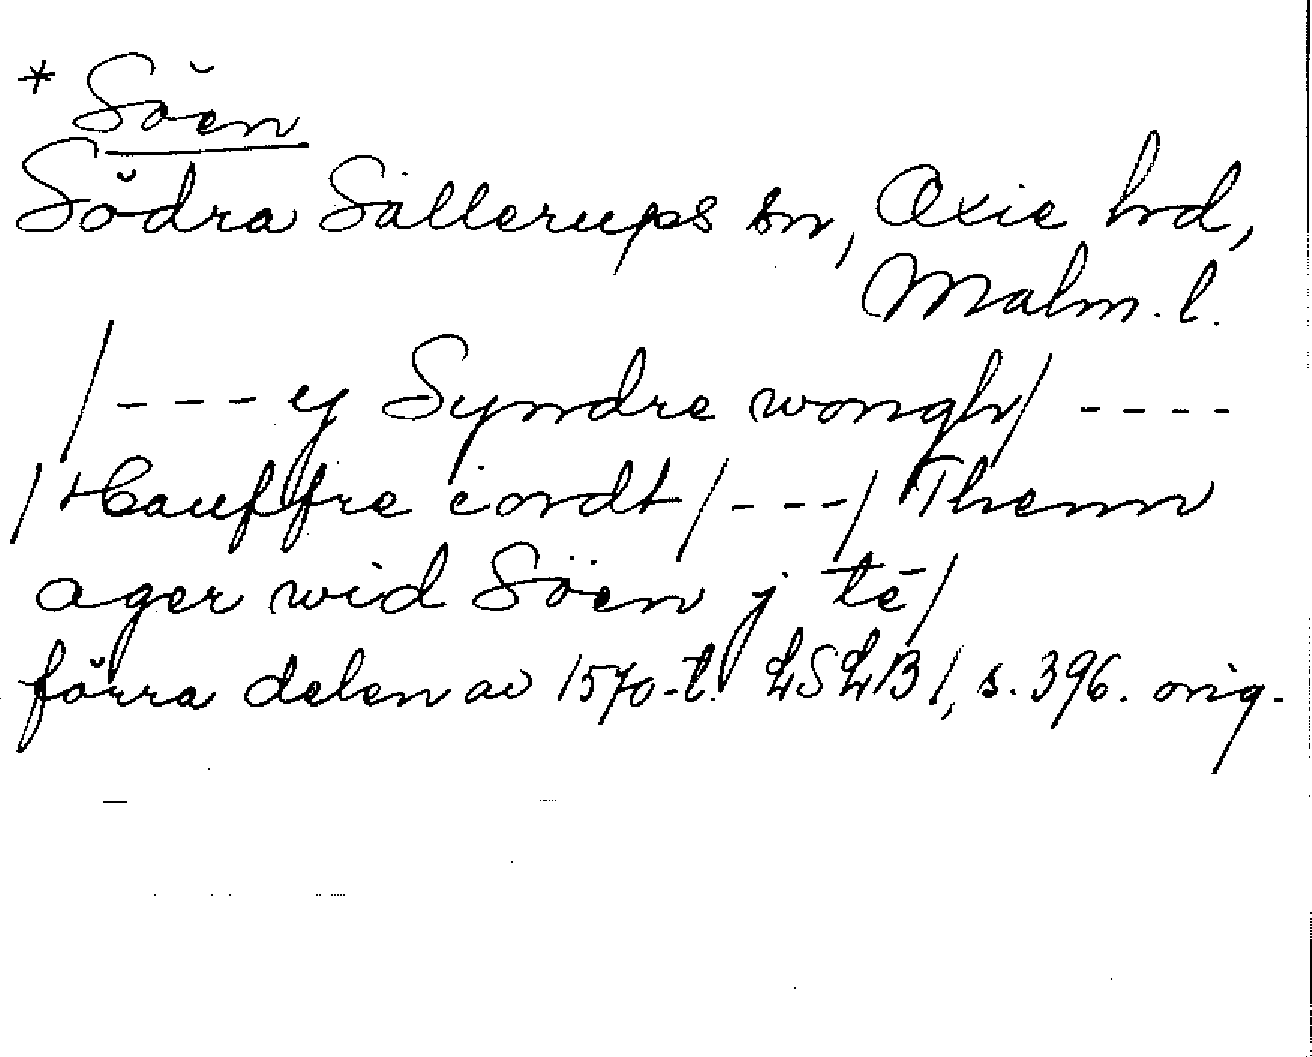 * Söen
Södra Sallerups sn, Oxie hrd,
Malm. l.
/---y Syndre wongh/ ----
/Hauffre iordt/---/Thenn
ager wid Söen j tē/
förra delen av 1570-t. LSLB 1, s. 396. orig.